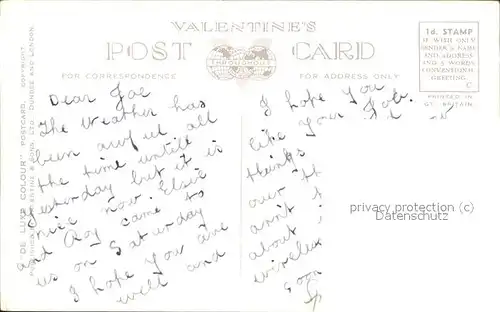 VALENTINE'S
POST CARD
THROUGHOUT
FOR CORRESPONDENCE
FOR ADDRESS ONLY
1d. STAMP
IF WITH ONLY
SENDER'S NAME
AND ADDRESS
AND 5 WORDS
CONVENTIONAL
GREETING.
C
PRINTED IN
GT. BRITAIN
"DE LUXE COLOUR" POSTCARD. COPYRIGHT
VALENTINE & SONS, LTD. DUNDEE AND LONDON
Dear
The Weather has
been awful all
the time untill
yesterday but it is
nice now. Elsie
and Roy came to
us on Saturday
I hope you are
well and
I hope you
like your Job.
things
over th
about
soon
privacy protection (c)
Datenschutz